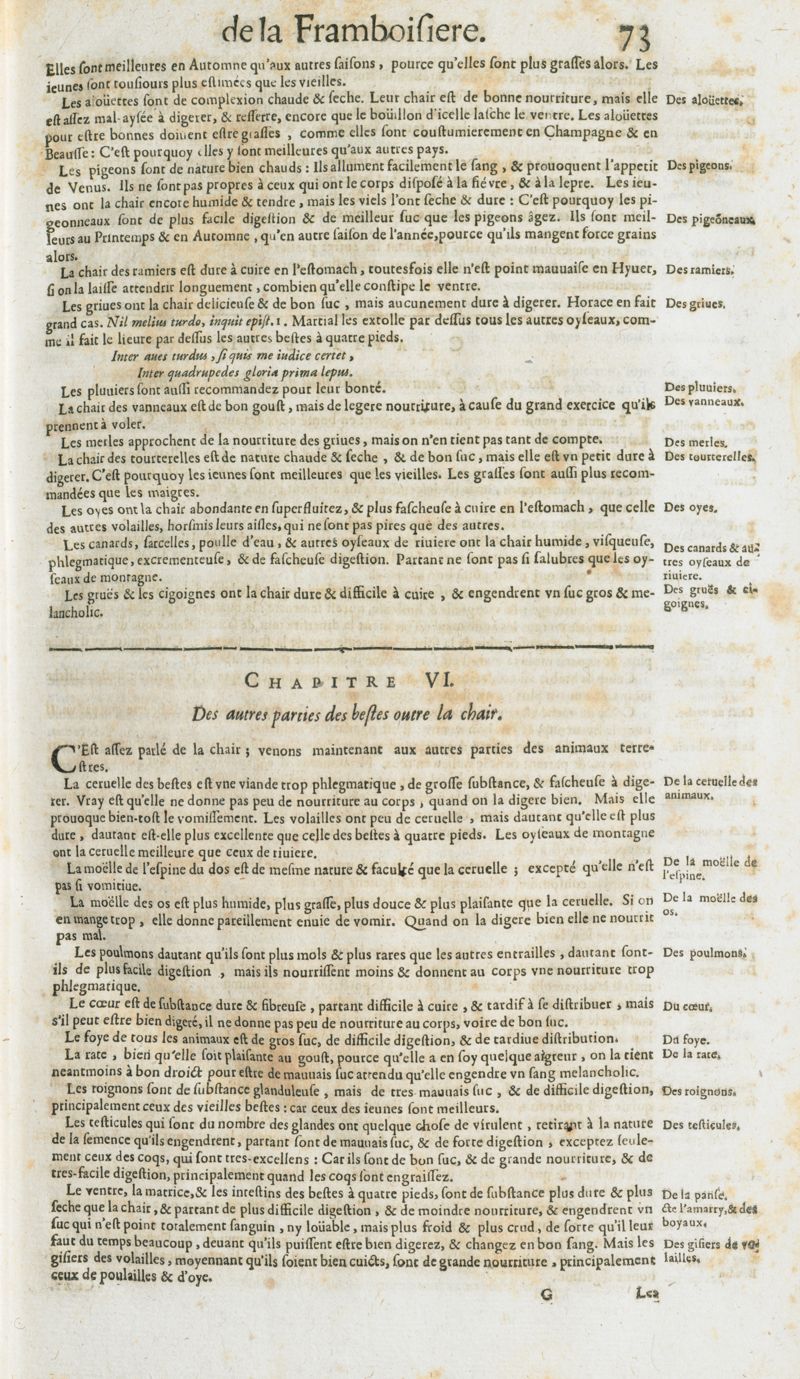 de la Framboiſiere. 73
Elles ſont meilleures en Automne qu'aux autres ſaiſons, pource qu'elles ſont plus graſſes alors. Les
ieunes ſont touſiours plus eſtimées que les vieilles.
Les aloüettes ſont de complexion chaude & ſeche. Leur chair eſt de bonne nourriture, mais elle
Des aloüettes.
eſt aſſez mal-ayſée à digerer, & reſſerre, encore que le boüillon d'icelle laſche le ventre. Les aloüettes
pour eſtre bonnes doiuent eſtre graſſes, comme elles ſont couſtumierement en Champagne & en
Beauſſe: C'eſt pourquoy elles y ſont meilleures qu'aux autres pays.
Les pigeons ſont de nature bien chauds: Ils allument facilement le ſang, & prouoquent l'appetit
Des pigeons.
de Venus. Ils ne ſont pas propres à ceux qui ont le corps diſpoſé à la fiévre, & à la lepre. Les ieu-
nes ont la chair encore humide & tendre, mais les viels l'ont ſeche & dure: C'eſt pourquoy les pi-
geonneaux ſont de plus facile digeſtion & de meilleur ſuc que les pigeons âgez. Ils ſont meil-
Des pigeõneaux.
leurs au Printemps & en Automne, qu'en autre ſaiſon de l'année, pource qu'ils mangent force grains
alors.
La chair des ramiers eſt dure à cuire en l'eſtomach, toutesfois elle n'eſt point mauuaiſe en Hyuer,
Des ramiers.
ſi on la laiſſe attendrir longuement, combien qu'elle conſtipe le ventre.
Les griues ont la chair delicieuſe & de bon ſuc, mais aucunement dure à digerer. Horace en fait
Des griues.
grand cas. Nil melius turdo, inquit epiſt. 1. Martial les extolle par deſſus tous les autres oyſeaux, com-
me il fait le lieure par deſſus les autres beſtes à quatre pieds.
Inter aues turdus, ſi quis me iudice certet,
Inter quadrupedes gloria prima lepus.
Les pluuiers ſont auſſi recommandez pour leur bonté.
Des pluuiers.
La chair des vanneaux eſt de bon gouſt, mais de legere nourriture, à cauſe du grand exercice qu'ils
Des vanneaux.
prennent à voler.
Les merles approchent de la nourriture des griues, mais on n'en tient pas tant de compte.
Des merles.
La chair des tourterelles eſt de nature chaude & ſeche, & de bon ſuc, mais elle eſt vn petit dure à
Des tourterelles.
digerer. C'eſt pourquoy les ieunes ſont meilleures que les vieilles. Les graſſes ſont auſſi plus recom-
mandées que les maigres.
Les oyes ont la chair abondante en ſuperfluitez, & plus faſcheuſe à cuire en l'eſtomach, que celle
Des oyes.
des autres volailles, horſmis leurs aiſles, qui ne ſont pas pires que des autres.
Les canards, ſarcelles, poulle d'eau, & autres oyſeaux de riuiere ont la chair humide, viſqueuſe,
Des canards & au-
phlegmatique, excrementeuſe, & de faſcheuſe digeſtion. Partant ne ſont pas ſi ſalubres que les oy-
tres oyſeaux de
ſeaux de montagne.
riuiere.
Les gruës & les cigoignes ont la chair dure & difficile à cuire, & engendrent vn ſuc gros & me-
Des gruës & ci-
lancholic.
goignes.
CHAPITRE VI.
Des autres parties des beſtes outre la chair.
C'Eſt aſſez parlé de la chair; venons maintenant aux autres parties des animaux terre-
ſtres.
La ceruelle des beſtes eſt vne viande trop phlegmatique, de groſſe ſubſtance, & faſcheuſe à dige-
De la ceruelle des
rer. Vray eſt qu'elle ne donne pas peu de nourriture au corps, quand on la digere bien. Mais elle
animaux.
prouoque bien-toſt le vomiſſement. Les volailles ont peu de ceruelle, mais dautant qu'elle eſt plus
dure, dautant eſt-elle plus excellente que celle des beſtes à quatre pieds. Les oyſeaux de montagne
ont la ceruelle meilleure que ceux de riuiere.
La moëlle de l'eſpine du dos eſt de meſme nature & faculté que la ceruelle; excepté qu'elle n'eſt
De la moëlle de
pas ſi vomitiue.
l'eſpine.
La moëlle des os eſt plus humide, plus graſſe, plus douce & plus plaiſante que la ceruelle. Si on
De la moëlle des
en mange trop, elle donne pareillement enuie de vomir. Quand on la digere bien elle ne nourrit
os.
pas mal.
Les poulmons dautant qu'ils ſont plus mols & plus rares que les autres entrailles, dautant ſont-
Des poulmons.
ils de plus facile digeſtion, mais ils nourriſſent moins & donnent au corps vne nourriture trop
phlegmatique.
Le cœur eſt de ſubſtance dure & fibreuſe, partant difficile à cuire, & tardif à ſe diſtribuer, mais
Du cœur.
s'il peut eſtre bien digeré, il ne donne pas peu de nourriture au corps, voire de bon ſuc.
Le foye de tous les animaux eſt de gros ſuc, de difficile digeſtion, & de tardiue diſtribution.
Du foye.
La rate, bien qu'elle ſoit plaiſante au gouſt, pource qu'elle a en ſoy quelque aigreur, on la tient
De la rate.
neantmoins à bon droict pour eſtre de mauuais ſuc attendu qu'elle engendre vn ſang melancholic.
Les roignons ſont de ſubſtance glanduleuſe, mais de tres mauuais ſuc, & de difficile digeſtion,
Des roignons.
principalement ceux des vieilles beſtes: car ceux des ieunes ſont meilleurs.
Les teſticules qui ſont du nombre des glandes ont quelque choſe de virulent, retirant à la nature
Des teſticules.
de la ſemence qu'ils engendrent, partant ſont de mauuais ſuc, & de forte digeſtion, exceptez ſeule-
ment ceux des coqs, qui ſont tres-excellens: Car ils ſont de bon ſuc, & de grande nourriture, & de
tres-facile digeſtion, principalement quand les coqs ſont engraiſſez.
Le ventre, la matrice, & les inteſtins des beſtes à quatre pieds, ſont de ſubſtance plus dure & plus
De la panſe,
ſeche que la chair, & partant de plus difficile digeſtion, & de moindre nourriture, & engendrent vn
de l'amarry, & des
ſuc qui n'eſt point totalement ſanguin, ny loüable, mais plus froid & plus crud, de ſorte qu'il leur
boyaux.
faut du temps beaucoup, deuant qu'ils puiſſent eſtre bien digerez, & changez en bon ſang. Mais les
Des giſiers de vo-
giſiers des volailles, moyennant qu'ils ſoient bien cuicts, ſont de grande nourriture, principalement
lailles.
ceux de poulailles & d'oye.
G Les